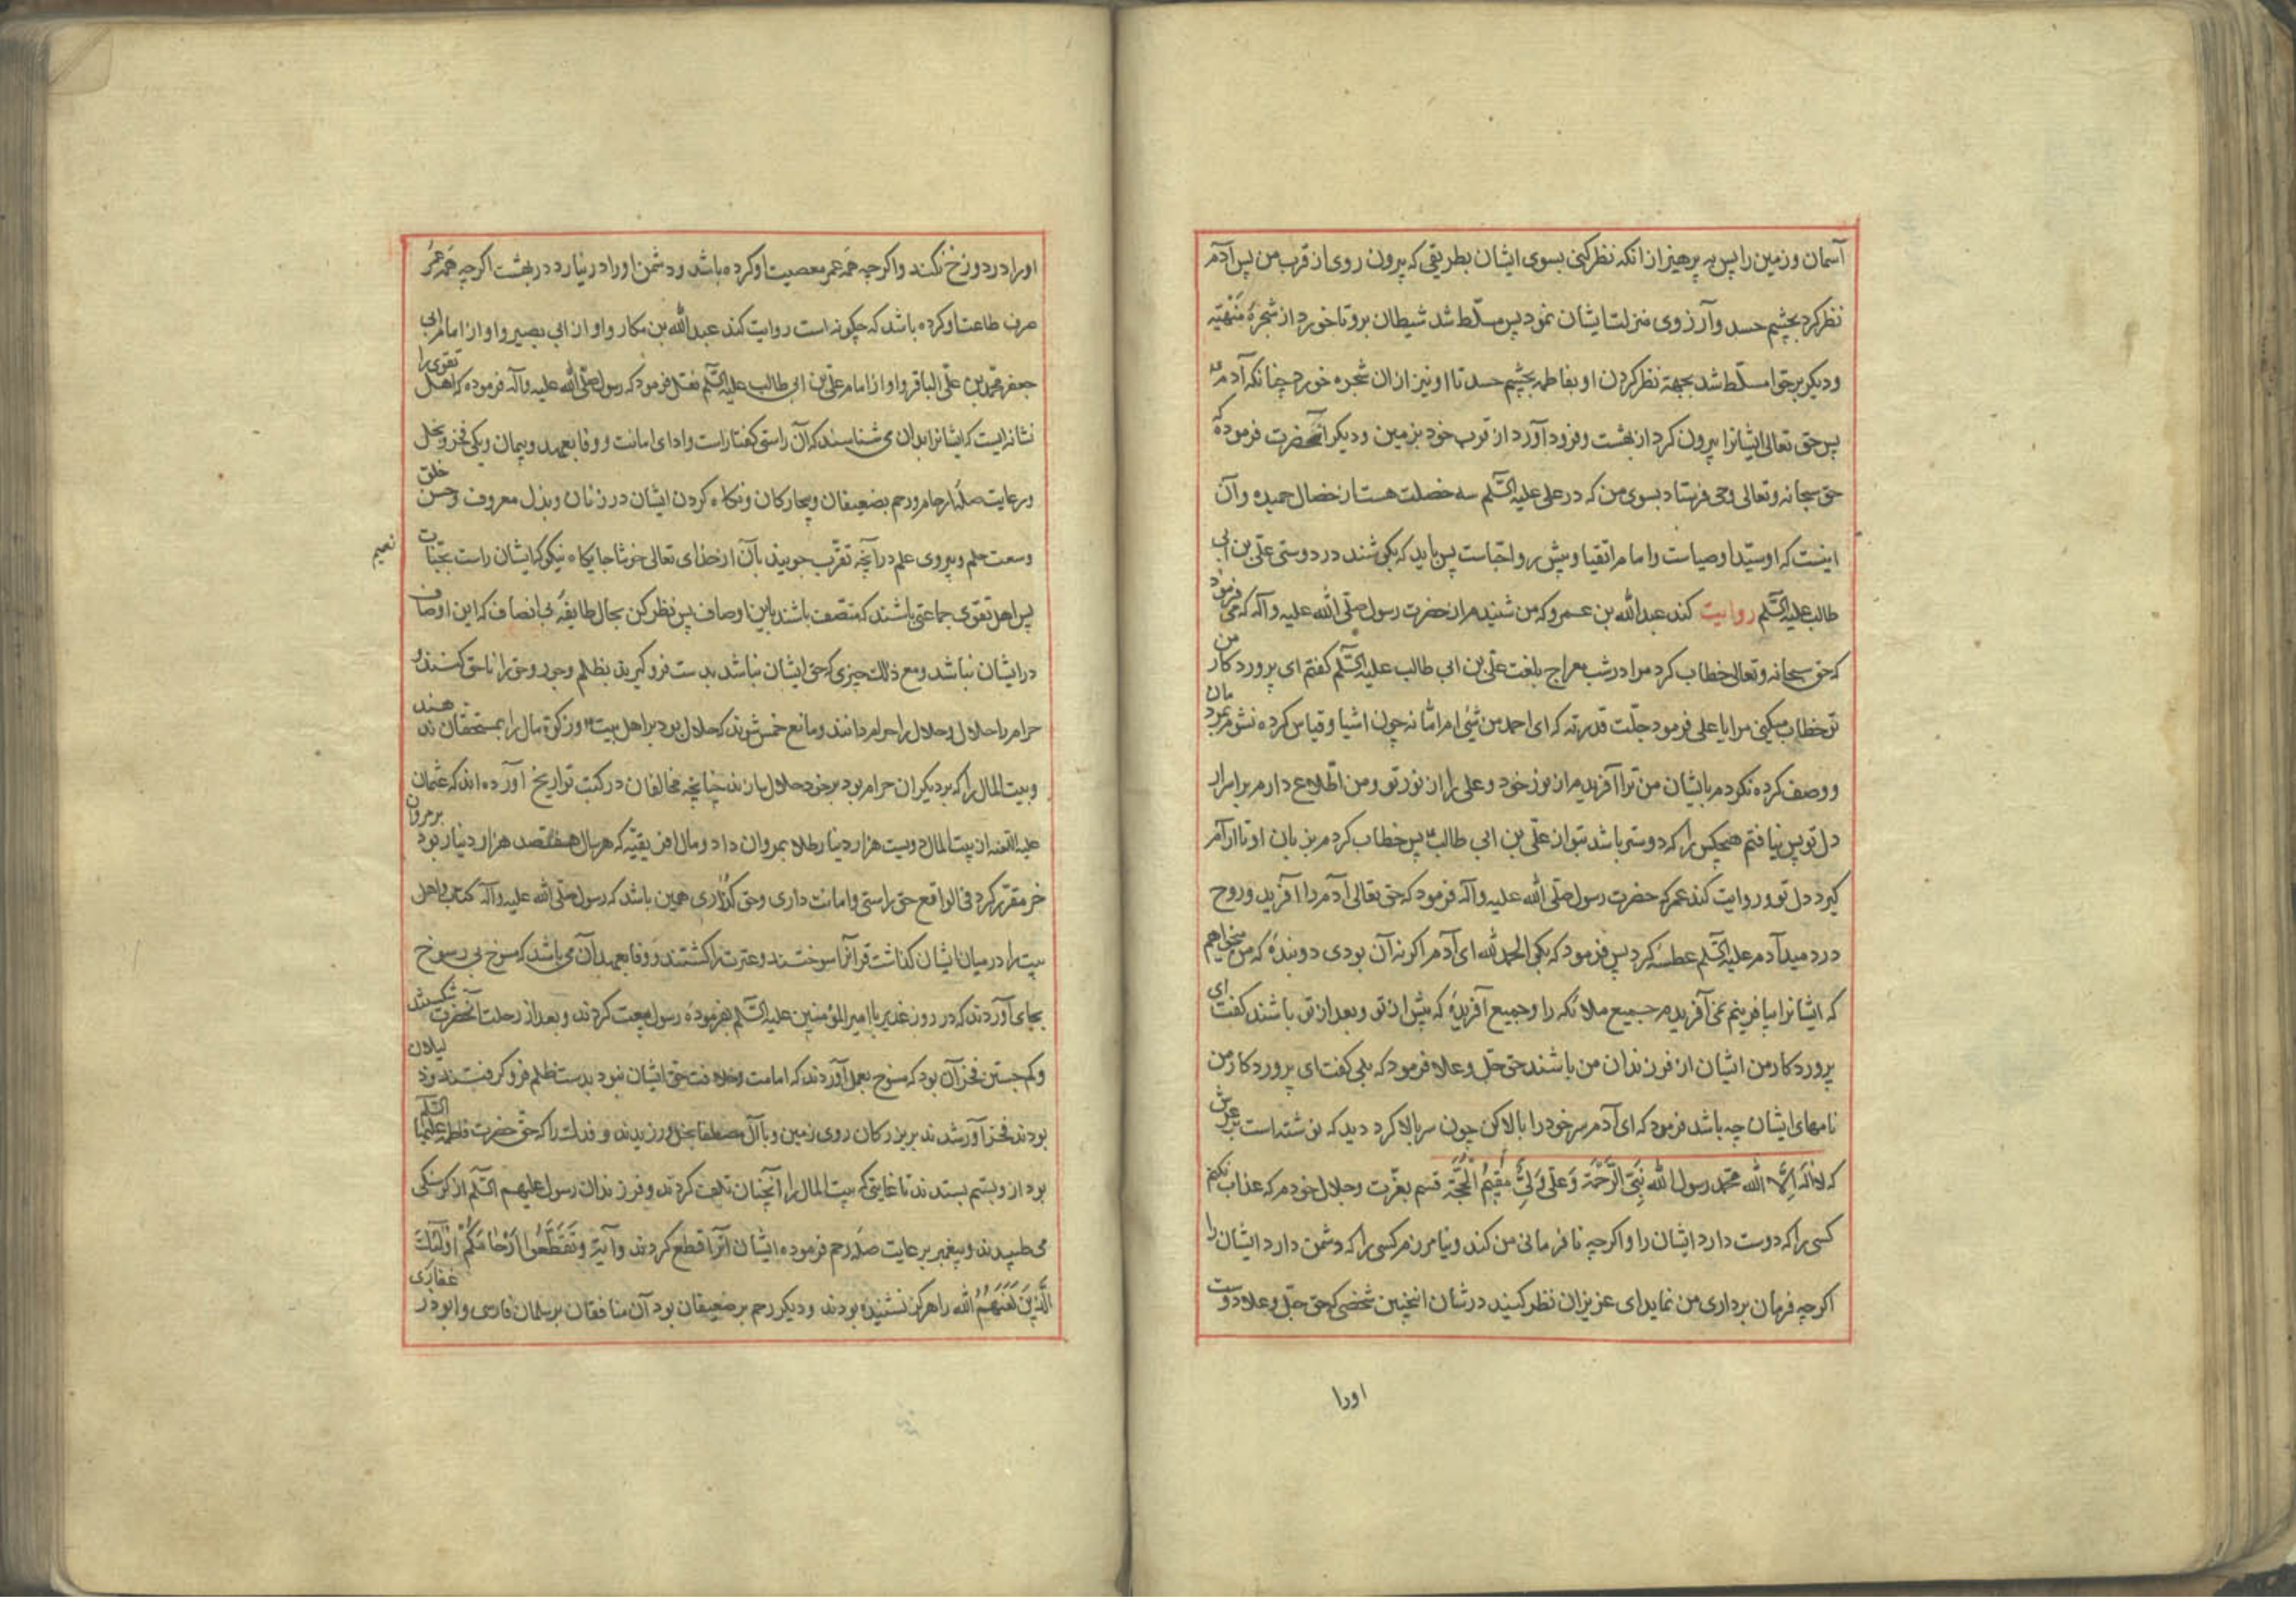 آسمان و زمین را پس به پرهیز از انکه نظر کنی بسوی ایشان بطریقی که بیرون روی از قرب من پس آدم
نظر کرد بچشم حسد و آرزوی منزلت ایشان نمود پس مسلّط شد شیطان برو تا خورد از شجرهٔ مَنْهیّه
و دیکر بر حوّا مسلّط شد بجهة نظر کردن او بفاطمه بچشم حسد تا او نیز از ان شجره خورد چنانکه آدم ع
پس حق تعالی ایشانرا بیرون کرد از بهشت و فرود آورد از قرب خود بزمین و دیکر آنحضرت فرموده که
حق سبحانه و تعالی وحی فرستاد بسوی من که در علی علیه السّلم سه خصلت هست از خصال حمیده و آن
اینست که او سیّد اوصیاست و امام اتقیا و پیش رو احبّاست پس باید که بکوشند در دوستی علیّ بن ابی
طالب علیه السّلم روایت کند عبد الله بن عمرو که من شنیدم از حضرت رسول صلّی الله علیه و آله که می فرمود
که حق سبحانه و تعالی خطاب کرد مرا در شب معراج بلغت علیّ بن ابی طالب علیه السّلم کفتم ای پروردکار من
تو خطاب میکنی مرا یا علی فرمود جلّت قدرته که ای احمد من شیئ ام امّا نه چون اشیا و قیاس کرده نشوم بمردمان
و وصف کرده نکردم باشیان من ترا آفریدم از نور خود و علی را از نور تو و من اطّلاع دارم بر اسرار
دل تو پس نیافتم هیچکس را که دوستر باشد بتو از علیّ بن ابی طالب ع پس خطاب کردم بزبان او تا ارام
کیرد دل تو و روایت کند عمر که حضرت رسول صلّی الله علیه و آله فرمود که حق تعالی آدم را آفرید و روح
در دمید آدم علیه السّلم عطسهٔ کرد پس فرمود که بکو الحمد لله ای آدم اکر نه آن بودی دو بندهٔ که من میخواهم
که ایشانرا بیافرینم نمی آفریدم جمیع ملائکه را و جمیع آفریدهٔ که پیش از تو و بعد از تو باشند کفت ای
پروردکار من ایشان از فرزندان من باشند حق جلّ و علا فرمود که بلی کفت ای پروردکار من
نامهای ایشان چه باشد فرمود که ای آدم سر خود را بالا کن چون سر بالا کرد دید که نوشته است بر عرش
که لا اله الّا الله محمّد رسول الله نَبیّ الرَّحْمَة وَ عَلیّ وَلیّ مُقیمُ الْحُجّة قسم بعزّت و جلال خودم که عذاب نکنم
کسی را که دوست دارد ایشان را و اکرچه نافرمانی من کند و نیامرزم کسی را که دشمن دارد ایشان را
اکرچه فرمان برداری من نماید ای عزیزان نظر کنید در شان اینچنین شخصی که حق جلّ و علا دوست
اورا
اورا در دوزخ نکند و اکرچه همه عمر معصیت او کرده باشد و دشمن اورا در نیارد در بهشت اکرچه همه عمر
صرف طاعت او کرده باشد که چکونه است روایت کند عبد الله بن مکار و او از ابی بصیر و او از امام ابی
جعفر محمّد بن علیّ الباقر و او از امام علیّ بن ابی طالب علیه السّلم نقل فرمود که رسول صلّی الله علیه و آله فرموده که اهل تقوی را
نشانهایست که ایشانرا بدان می شناسند که آن راستی کفتار است و ادای امانت و وفا بعهد و پیمان و یکی فخر و بخل
و رعایت صلهٔ ارحام و رحم بضعیفان و بیچارکان و نکاه کردن ایشان در زنان و بذل معروف و حسن خلق
و سعت حلم و پیروی علم در آنچه تقرّب جویند بآن از خدای تعالی خوشا جایکاه نیکو که ایشان راست بجنّات نعیم
پس اهل تقوی جماعتی باشند که متّصف باشند باین اوصاف پس نظر کن بحال طایفهٔ بی انصاف که این اوصاف
در ایشان نباشد و مع ذلک چیزی که حق ایشان نباشد بدست فرو کیرند بظلم و جور و حق را ناحق کنند و
حرام را حلال و حلال را حرام دانند و مانع خمس شوند که حلال بود بر اهل بیت ع و زکوة مال را بمستحقان ندهند
و بیت المال را که بر دیکران حرام بود بر خود حلال سازند چنانچه مخالفان در کتب تواریخ آورده اند که عثمان
علیه اللعنه از بیت المال دویست هزار دینار طلا بمروان داد و مال افریقیّه که هر سال هفتصد هزار دینار بود بر مروان
خر مقرّر کرد فی الواقع حق راستی و امانت داری و حق کذاری همین باشد که رسول صلّی الله علیه و آله کتاب و اهل
بیت را در میان ایشان کذاشت قرآنرا سوختند و عترت را کشتند و وفا بعهد آن می باشد که منوخ بی رسوخ
بجای آوردند که در روز غدیر با امیر المؤمنین علیه السّلم بفرمودهٔ رسول بیعت کردند و بعد از رحلت آنحضرت شکستند
و کم جستن فخر آن بود که منوخ بعمل آوردند که امامت و خلافت حق ایشان نبود بدست ظلم فرو کرفتند و
بودند فخر آور شدند بر بزرکان روی زمین و با آل مصطفا بخل ورزیدند و فدک را که حق حضرت فاطمه علیها السّلم
بود از و بستم بستدند تا غایتی که بیت المال را آنچنان تلف کردند و فرزندان رسول علیهم السّلم از کرسنکی
می طپیدند و پیغمبر برعایت صله رحم فرموده ایشان آنرا قطع کردند و آیهٔ وَ تُقَطِّعُوا اَرْحَامَکُمْ اُولٰئِکَ
الَّذِینَ لَعَنَهُمُ الله را هرکز نشنیده بودند و دیکر رحم بر ضعیفان بود آن منافقان بر سلمان فارسی و ابوذر غفاری